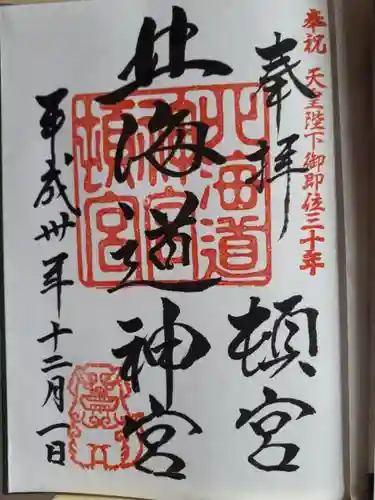 奉祝 天皇陛下御即位三十年
奉拝
頓宮
北海道神宮
北海道
神宮
頓宮
平成卅年十二月一日